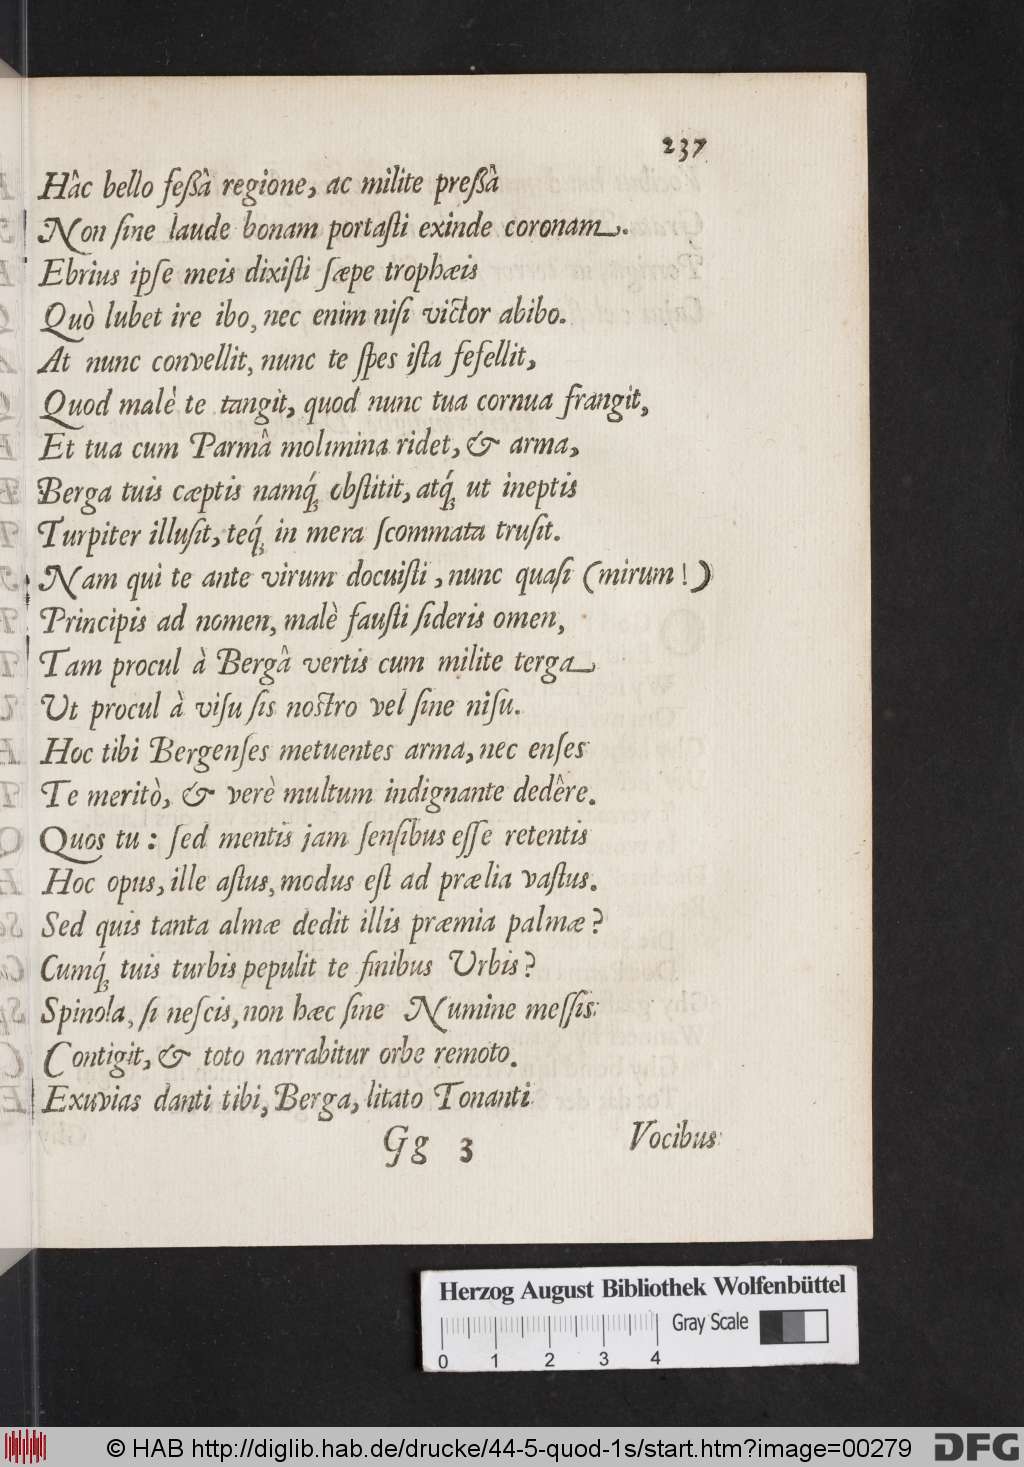 237
Hâc bello feßâ regione, ac milite preßâ
Non ſine laude bonam portaſti exinde coronam.
Ebrius ipſe meis dixiſti ſæpe trophæis
Quò lubet ire ibo, nec enim niſi victor abibo.
At nunc convellit, nunc te ſpes iſta fefellit,
Quod malè te tangit, quod nunc tua cornua frangit,
Et tua cum Parmâ molimina ridet, & arma,
Berga tuis cæptis namq́ꝫ obſtitit, atq́ꝫ ut ineptis
Turpiter illuſit, teq́ꝫ in mera ſcommata truſit.
Nam qui te ante virum docuiſti, nunc quaſi (mirum!)
Principis ad nomen, malè fauſti ſideris omen,
Tam procul à Bergâ vertis cum milite terga
Ut procul à viſu ſis noſtro vel ſine niſu.
Hoc tibi Bergenſes metuentes arma, nec enſes
Te meritò, & verè multum indignante dedêre.
Quos tu: ſed mentis jam ſenſibus eſſe retentis
Hoc opus, ille aſtus, modus eſt ad prælia vaſtus.
Sed quis tanta almæ dedit illis præmia palmæ?
Cumq́ꝫ tuis turbis pepulit te finibus Urbis?
Spinola, ſi neſcis, non hæc ſine Numine meſſis
Contigit, & toto narrabitur orbe remoto.
Exuvias danti tibi, Berga, litato Tonanti
Gg 3 Vocibus
Herzog August Bibliothek Wolfenbüttel
Gray Scale
0 1 2 3 4
© HAB http://diglib.hab.de/drucke/44-5-quod-1s/start.htm?image=00279
DFG